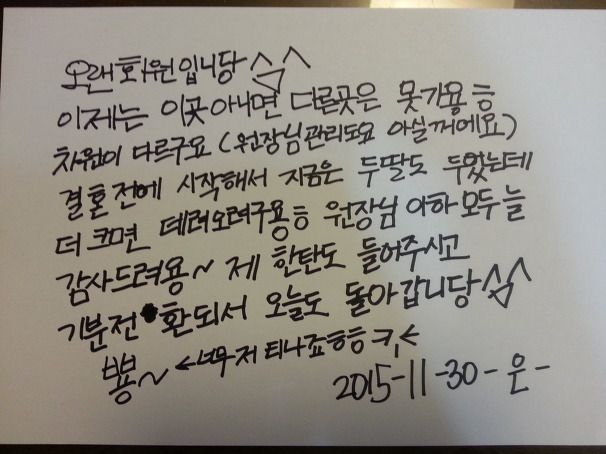 오랜회원입니당 ^^
이제는 이곳아니면 다른곳은 못가용ㅎ
차원이 다르구요 (원장님관리도요 아실꺼에요)
결혼전에 시작해서 지금은 두딸도 두었는데
더 크면 데려오려구용ㅎ 원장님 이하 모두 늘
감사드려용~ 제 한탄도 들어주시고
기분전환되서 오늘도 돌아갑니당^^
뿅~ ←너무저 티나죠ㅎㅎ ㅋ
2015-11-30-은-